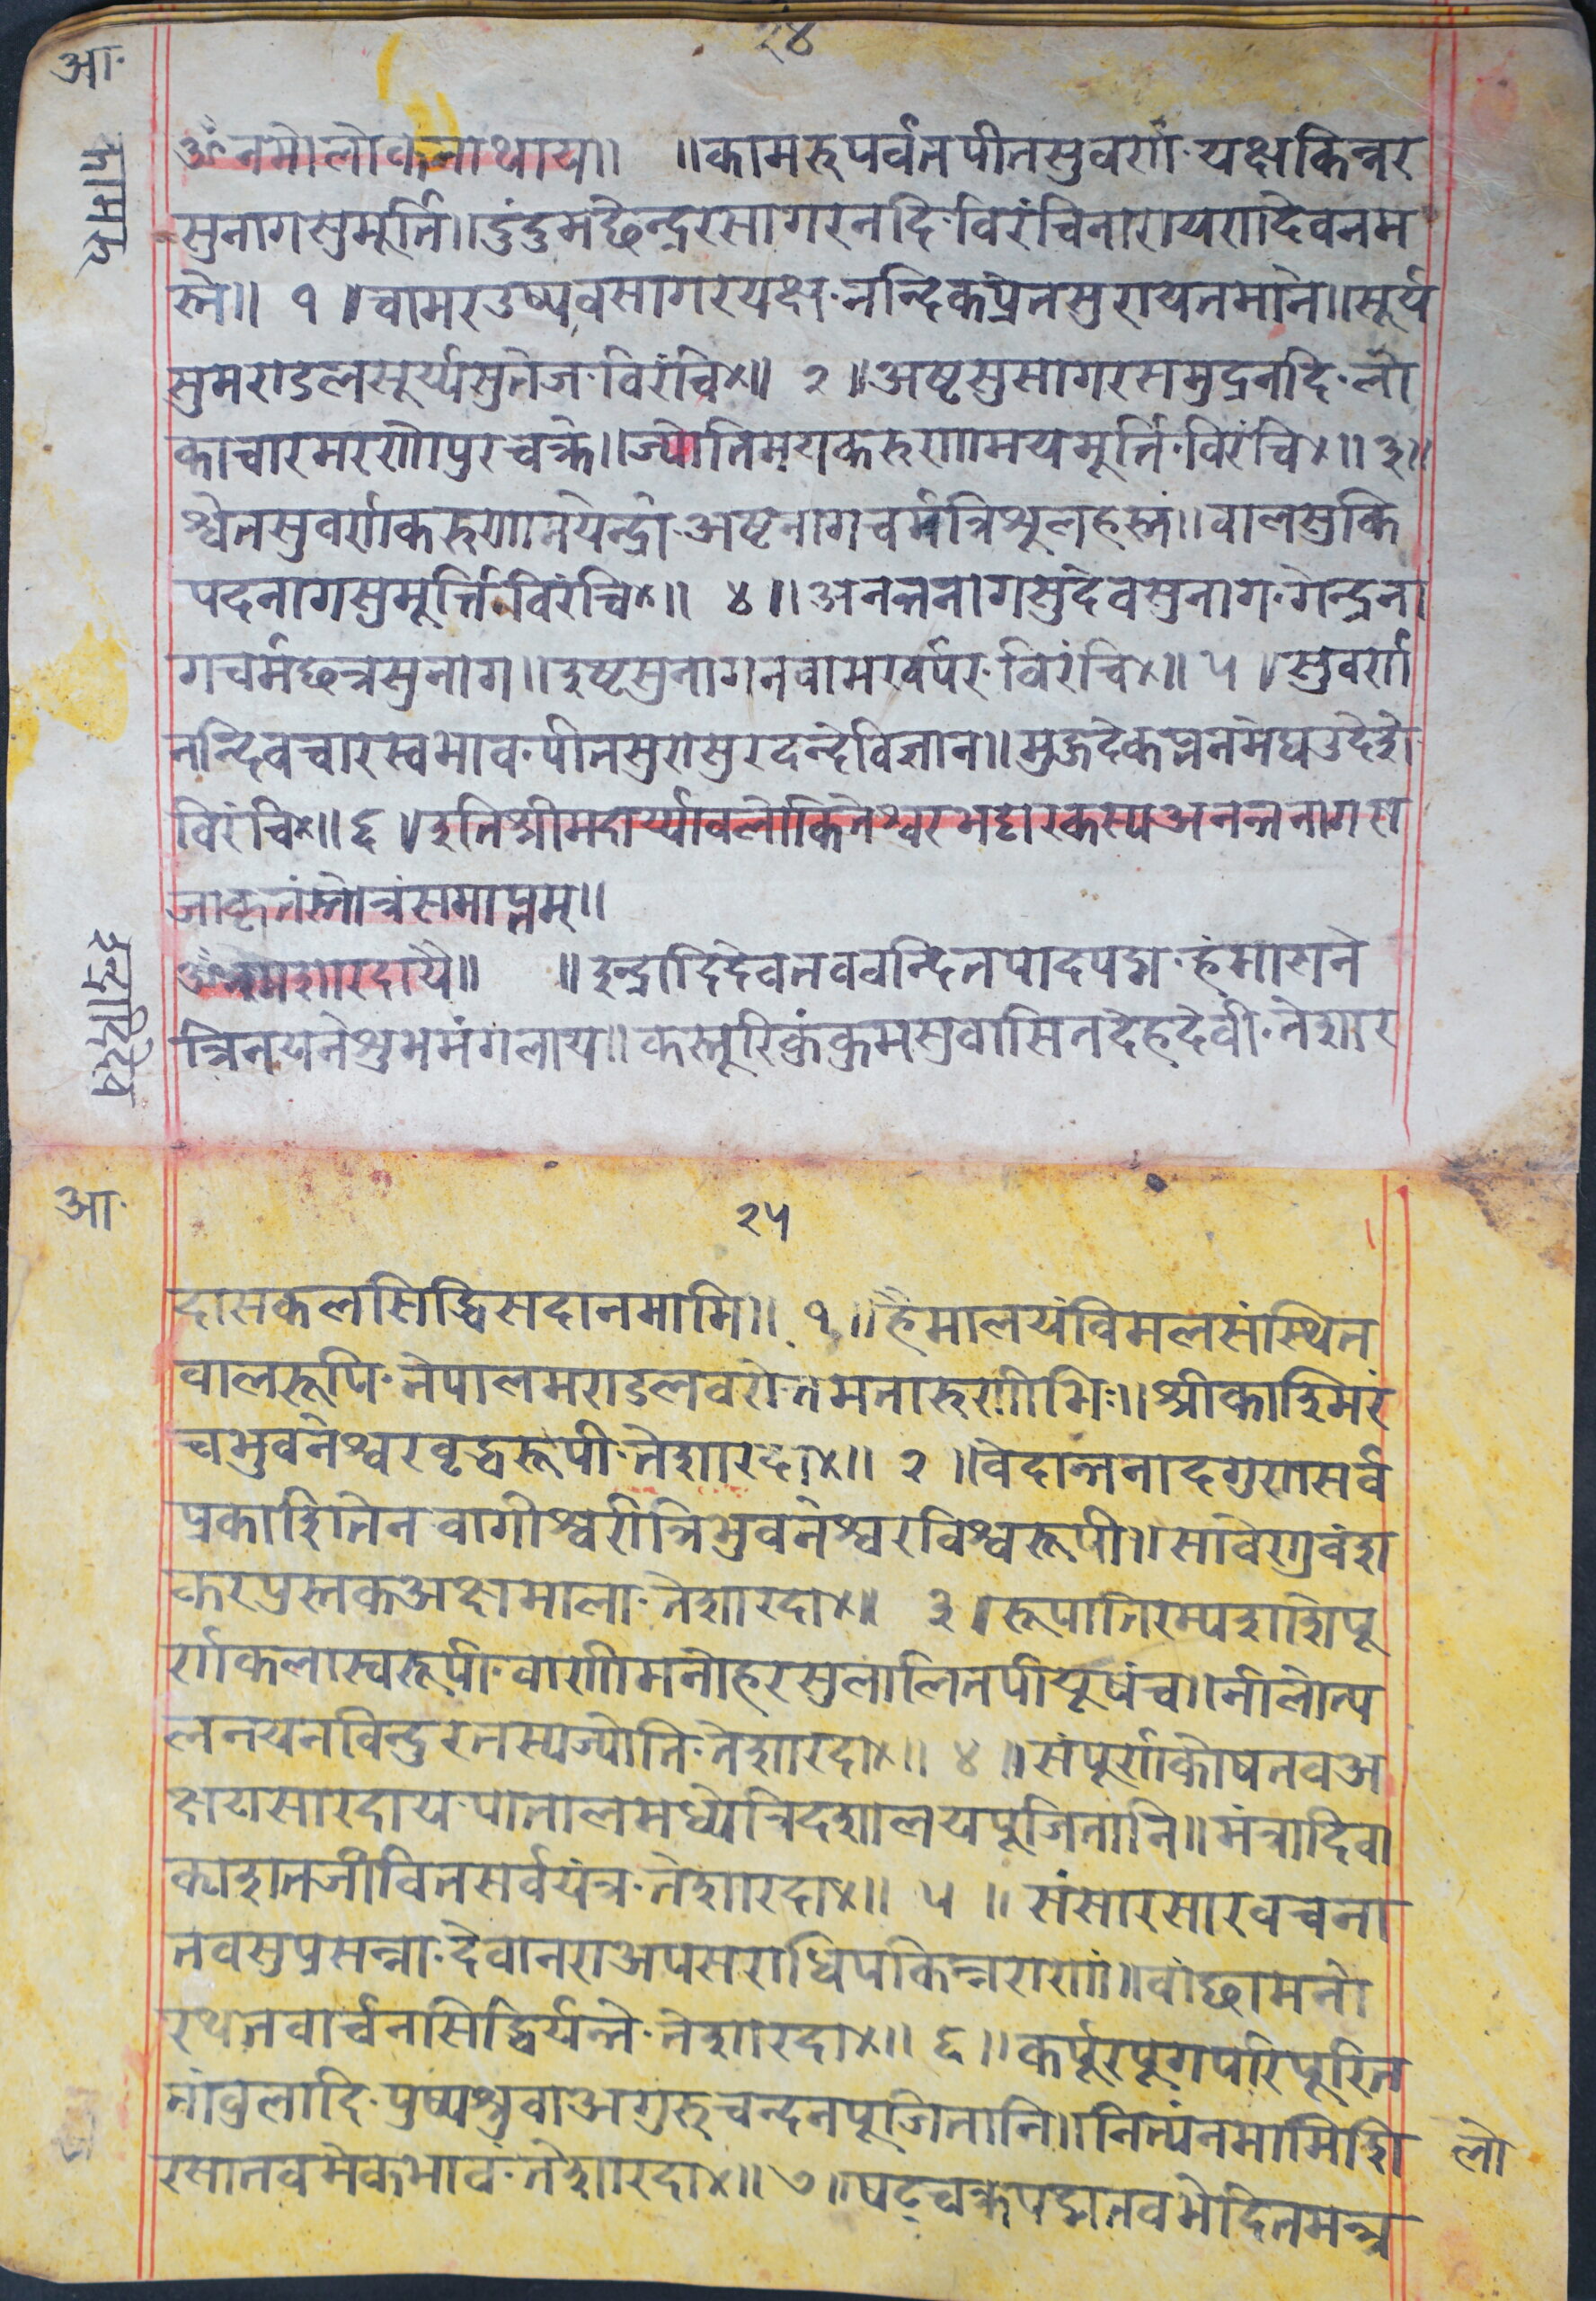 २४
आ·
कामरू
ॐ नमो लोकनाथाय॥ ॥कामरुपर्वतपीतसुवर्ण·यक्षकिन्नर
सुनागसुमूर्त्ति॥डुंडुमछेन्द्ररसागरनदि·विरंचिनारायणदेवनम
स्ते॥ १ ॥चामरउष्पवसागरयक्ष·नन्दिकप्रेतसुरायनमोत॥सूर्य
सुमण्डलसूर्य्यसुतेज·विरंचि×॥ २ ॥अष्टसुसागरसमुद्रनदि·लो
काचारमरणोपुरचक्रे॥ज्योतिमयकरुणामयमूर्त्ति·विरंचि×॥ ३॥
श्वेतसुवर्णकरुणामयेन्द्रो·अष्टनागचर्मत्रिशूलहस्तं॥वालसुकि
पदनागसुमूर्त्ति·विरंचि×॥ ४ ॥अनन्तनागसुदेवसुनाग·गेन्द्रना
गचर्मछत्रसुनाग॥दुष्टसुनागनवामखर्पर·विरंचि×॥ ५ ॥सुवर्ण
नन्दिवचारस्वभाव·पीतसुरासुरदन्देविज्ञान॥मुञ्जदेकप्लनमेघउदेशे·
विरंचि×॥ ६ ॥इतिश्रीमदार्य्यावलोकितेश्वरभट्टारकस्यअनन्तनागरा
जाकृतंस्तोत्रंसमाप्तम्॥
इन्द्रादिदेव
ॐ नमशारदायै॥ ॥इन्द्रादिदेवतववन्दितपादपद्म·हंमाशने
त्रिनयनेशुभमंगलाय॥कस्तूरिकुंकुमसुवासितदेहदेवी·तेशार
आ·
२५
दासकलसिद्धिसदानमामि॥ १ ॥हैमालयंविमलसंस्थित
वालरूपि·नेपालमण्डलवरोतमनारुणीभिः॥श्रीकाशिमिरं
चभुवनेश्वरवृद्धरूपी·तेशारदा×॥ २ ॥वेदान्तनादगुणसर्व
प्रकाशितेन·वागीश्वरीत्रिभुवनेश्वरविश्वरूपी॥सावेणुवंश
करपुस्तकअक्षमाला·तेशारदा×॥ ३ ॥रूपातिरम्यशशिपू
र्णकलास्वरूपी·वाणीमनोहरसुलालितपीयूषंच॥नीलोत्प
लनयनविन्दुरेतस्यज्योति·तेशारदा×॥ ४ ॥संपूर्णकोषतवअ
क्षयसारदाय·पातालमध्येत्रिदशालयपूजितानि॥मंत्रादिवा
काशतजीवितसर्वयंत्र·तेशारदा×॥ ५ ॥संसारसारवचना
तवसुप्रसन्ना·देवानराअपसराधिपकिन्नराणां॥वांछामनो
रथतवार्चनसिद्धिर्यन्ते·तेशारदा×॥ ६ ॥कर्पूरपूगर्परिपूरित
तांवुलादि·पुष्पश्रुवाअगुरुचन्दनपूजितानि॥नित्यंनमामिशि
लो
रसातवमेकभावं·तेशारदा×॥ ७ ॥षट्चक्रपद्मतवभेदितमन्त्र